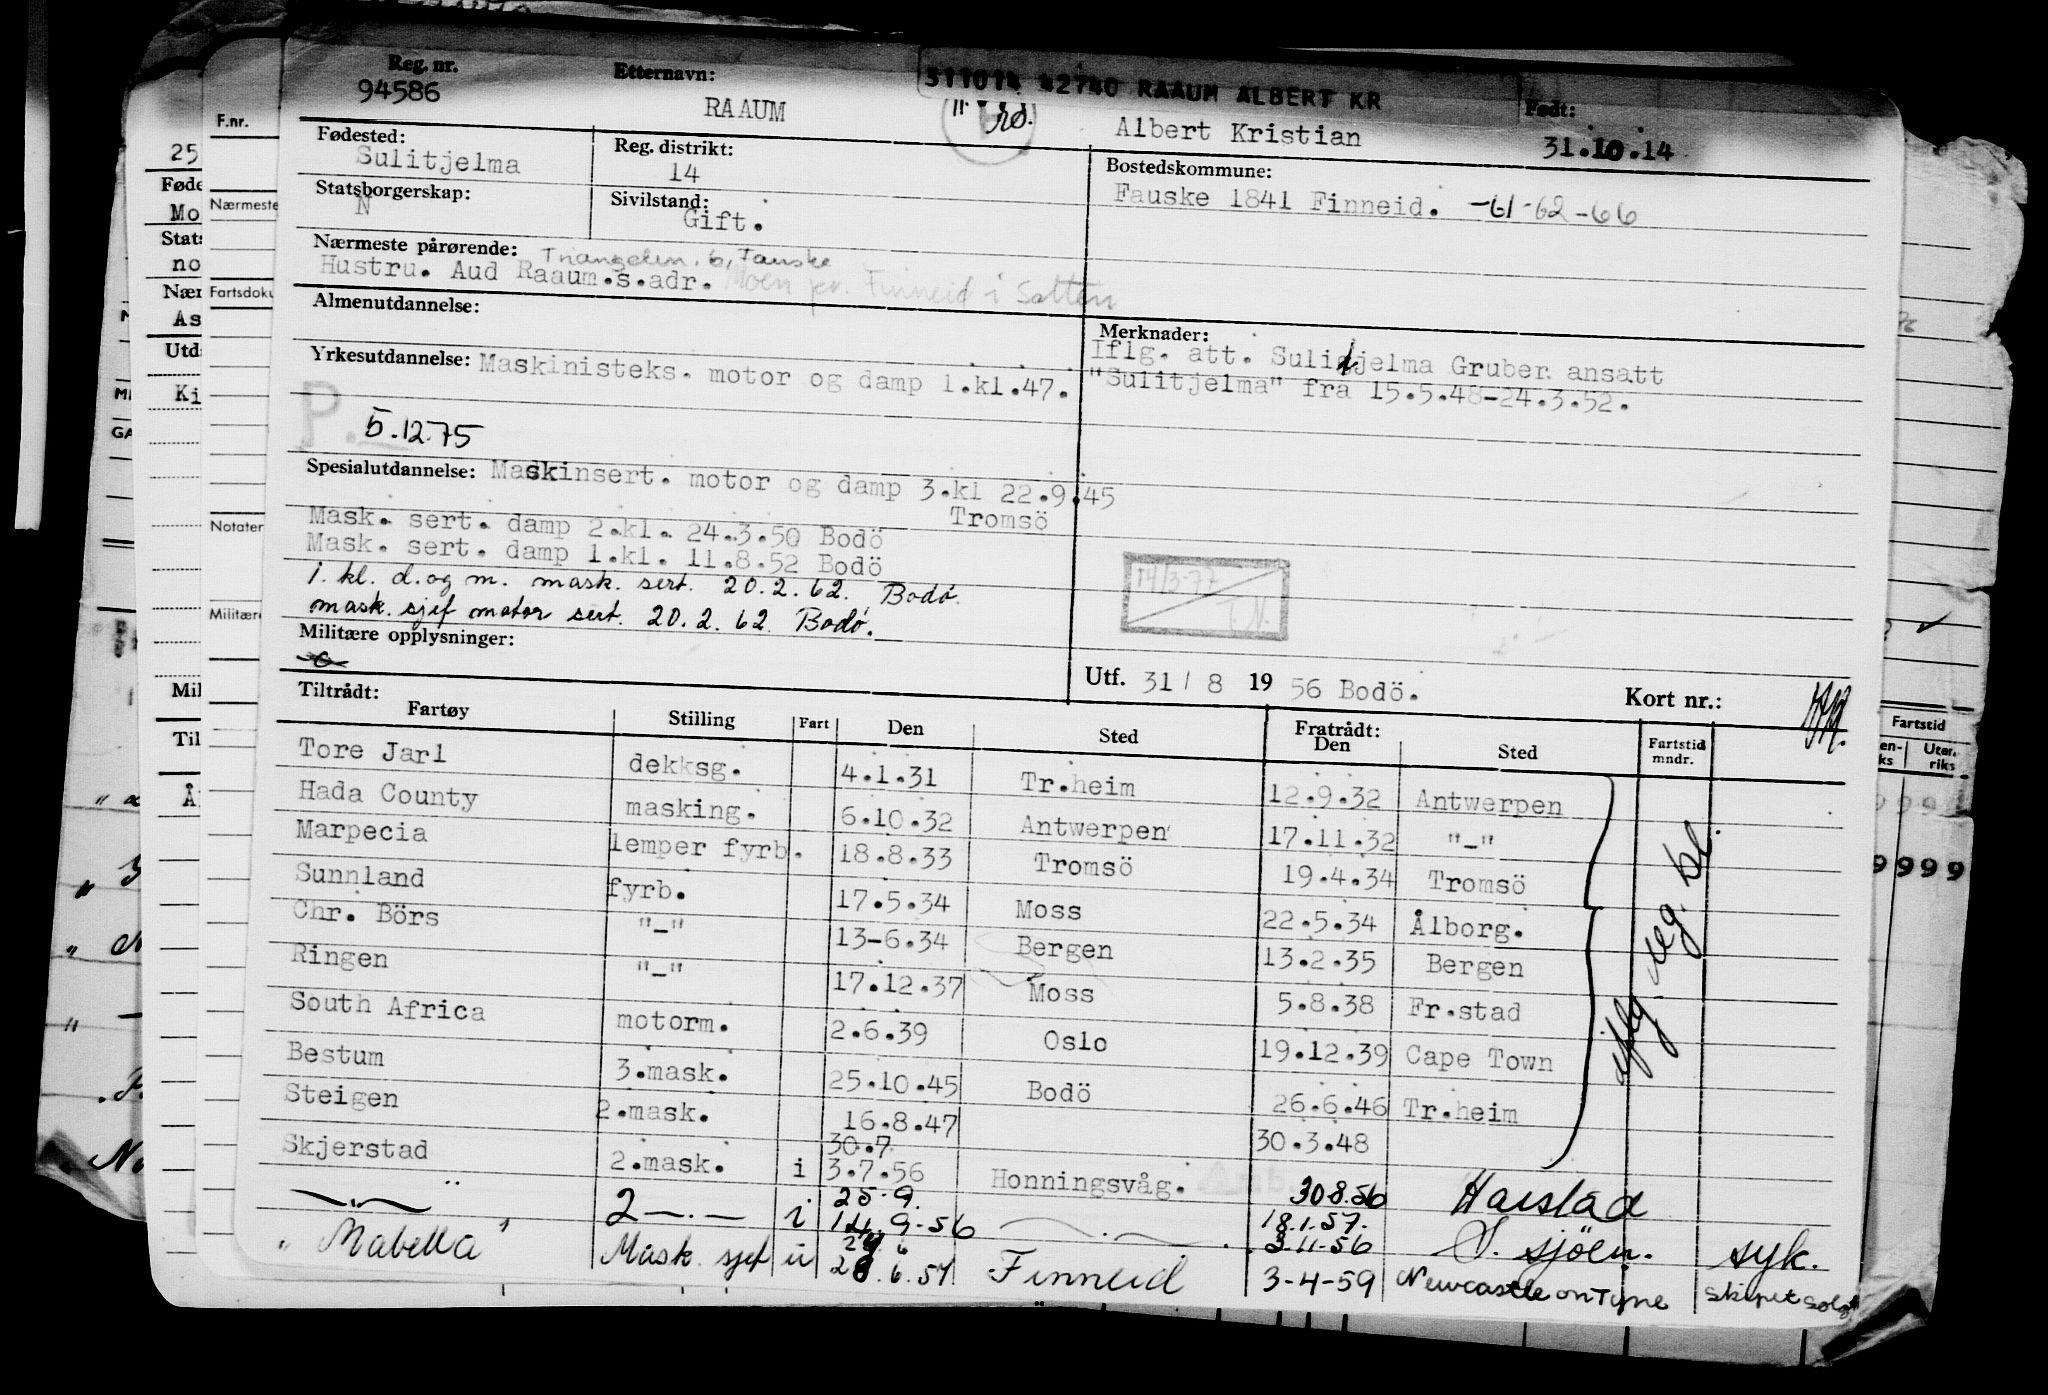 Reg. nr. Etternavn: 511014 42740 RAAUM ALBERT KR Født:
94586 RAAUM Albert Kristian 31.10.14
Fødested: Reg. distrikt: Bostedskommune:
Sulitjelma 14 Fauske 1841 Finneid. -61-62-66
Statsborgerskap: Sivilstand:
N Gift.
Nærmeste pårørende: Triangelen. 6, Fauske
Hustru. Aud Raaum.s.adr. Moen pr. Finneid i Salten
Almenutdannelse: Merknader:
Iflg. att. Sulitjelma Gruber ansatt
Yrkesutdannelse: Maskinisteks. motor og damp 1.kl.47. "Sulitjelma" fra 15.5.48-24.3.52.
P. 5.12.75
Spesialutdannelse: Maskinsert. motor og damp 3.kl 22.9.45
Tromsö
Mask. sert. damp 2.kl. 24.3.50 Bodö
Mask. sert. damp 1.kl. 11.8.52 Bodö
1. kl. d. og m. mask. sert. 20.2.62. Bodø.
mask. sjef motor sert. 20.2.62 Bodø.
14/3-77
T.N.
Militære opplysninger:
Utf. 31/8 1956 Bodö. Kort nr.:
Tiltrådt: Fratrådt:
Fartøy Stilling Fart Den Sted Den Sted Fartstid mndr.
Tore Jarl dekksg. 4.1.31 Tr.heim 12.9.32 Antwerpen
Hada County masking. 6.10.32 Antwerpen 17.11.32 "-"
Marpecia lemper fyrb. 18.8.33 Tromsö 19.4.34 Tromsö
Sunnland fyrb. 17.5.34 Moss 22.5.34 Ålborg.
Chr. Börs "-" 13-6.34 Bergen 13.2.35 Bergen
Ringen "-" 17.12.37 Moss 5.8.38 Fr.stad
South Africa motorm. 2.6.39 Oslo 19.12.39 Cape Town
Bestum 3.mask. 25.10.45 Bodö 26.6.46 Tr.heim
Steigen 2.mask. 16.8.47 30.3.48
iflg. reg. bl.
30.7
Skjerstad 2.mask. i 3.7.56 Honningsvåg. 30.8.56 Harstad
25.9. 18.1.57.
—.— " 2 —.— i 14.9-56 —.— 3-11-56 S. sjöen. syk.
" Mabella " Mask. sjef u 28.6.57 Finneid 3-4-59 Newcastle on Tyne skipet solgt
F.nr.
Nærmeste
Fartsdoku
Notater
Militære
25
Føde
Mo
Stats
no
Nær
As
Utd
Ki
Mil
Til
Fartstid
Uten-
riks
9999